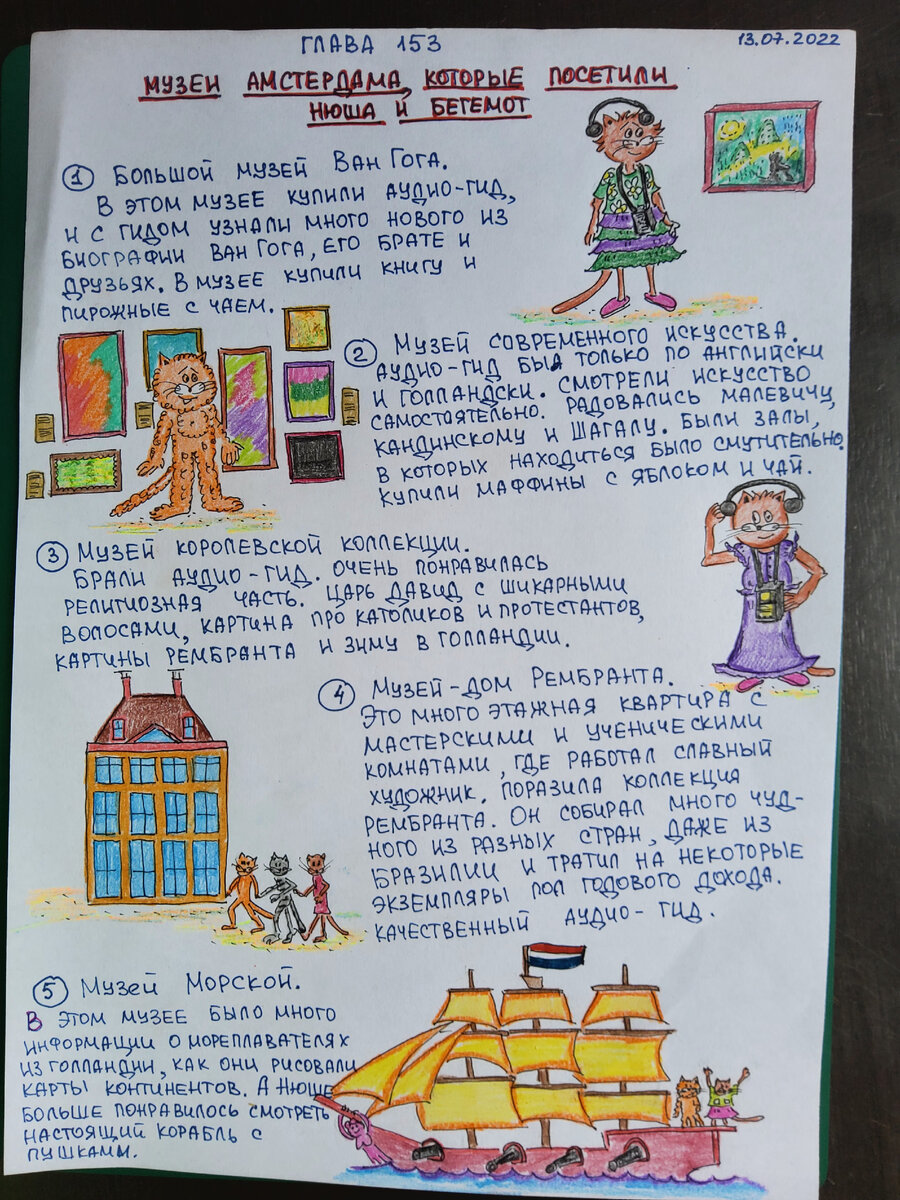 ГЛАВА 153
13.07.2022
МУЗЕИ АМСТЕРДАМА, КОТОРЫЕ ПОСЕТИЛИ
НЮША И БЕГЕМОТ
1 БОЛЬШОЙ МУЗЕЙ ВАН ГОГА.
В ЭТОМ МУЗЕЕ КУПИЛИ АУДИО-ГИД,
И С ГИДОМ УЗНАЛИ МНОГО НОВОГО ИЗ
БИОГРАФИИ ВАН ГОГА, ЕГО БРАТЕ И
ДРУЗЬЯХ. В МУЗЕЕ КУПИЛИ КНИГУ И
ПИРОЖНЫЕ С ЧАЕМ.
2 МУЗЕЙ СОВРЕМЕННОГО ИСКУССТВА.
АУДИО-ГИД БЫЛ ТОЛЬКО ПО АНГЛИЙСКИ
И ГОЛЛАНДСКИ. СМОТРЕЛИ ИСКУССТВО
САМОСТОЯТЕЛЬНО. РАДОВАЛИСЬ МАЛЕВИЧУ,
КАНДИНСКОМУ И ШАГАЛУ. БЫЛИ ЗАЛЫ,
В КОТОРЫХ НАХОДИТЬСЯ БЫЛО СМУТИТЕЛЬНО.
КУПИЛИ МАФФИНЫ С ЯБЛОКОМ И ЧАЙ.
3 МУЗЕЙ КОРОЛЕВСКОЙ КОЛЛЕКЦИИ.
БРАЛИ АУДИО-ГИД. ОЧЕНЬ ПОНРАВИЛАСЬ
РЕЛИГИОЗНАЯ ЧАСТЬ. ЦАРЬ ДАВИД С ШИКАРНЫМИ
ВОЛОСАМИ, КАРТИНА ПРО КАТОЛИКОВ И ПРОТЕСТАНТОВ,
КАРТИНЫ РЕМБРАНТА И ЗИМУ В ГОЛЛАНДИИ.
4 МУЗЕЙ-ДОМ РЕМБРАНТА.
ЭТО МНОГО ЭТАЖНАЯ КВАРТИРА С
МАСТЕРСКИМИ И УЧЕНИЧЕСКИМИ
КОМНАТАМИ, ГДЕ РАБОТАЛ СЛАВНЫЙ
ХУДОЖНИК. ПОРАЗИЛА КОЛЛЕКЦИЯ
РЕМБРАНТА. ОН СОБИРАЛ МНОГО ЧУД-
НОГО ИЗ РАЗНЫХ СТРАН, ДАЖЕ ИЗ
БРАЗИЛИИ И ТРАТИЛ НА НЕКОТОРЫЕ
ЭКЗЕМПЛЯРЫ ПОЛ ГОДОВОГО ДОХОДА.
КАЧЕСТВЕННЫЙ АУДИО-ГИД.
5 МУЗЕЙ МОРСКОЙ.
В ЭТОМ МУЗЕЕ БЫЛО МНОГО
ИНФОРМАЦИИ О МОРЕПЛАВАТЕЛЯХ
ИЗ ГОЛЛАНДИИ, КАК ОНИ РИСОВАЛИ
КАРТЫ КОНТИНЕНТОВ. А НЮШЕ
БОЛЬШЕ ПОНРАВИЛОСЬ СМОТРЕТЬ
НАСТОЯЩИЙ КОРАБЛЬ С
ПУШКАМИ.